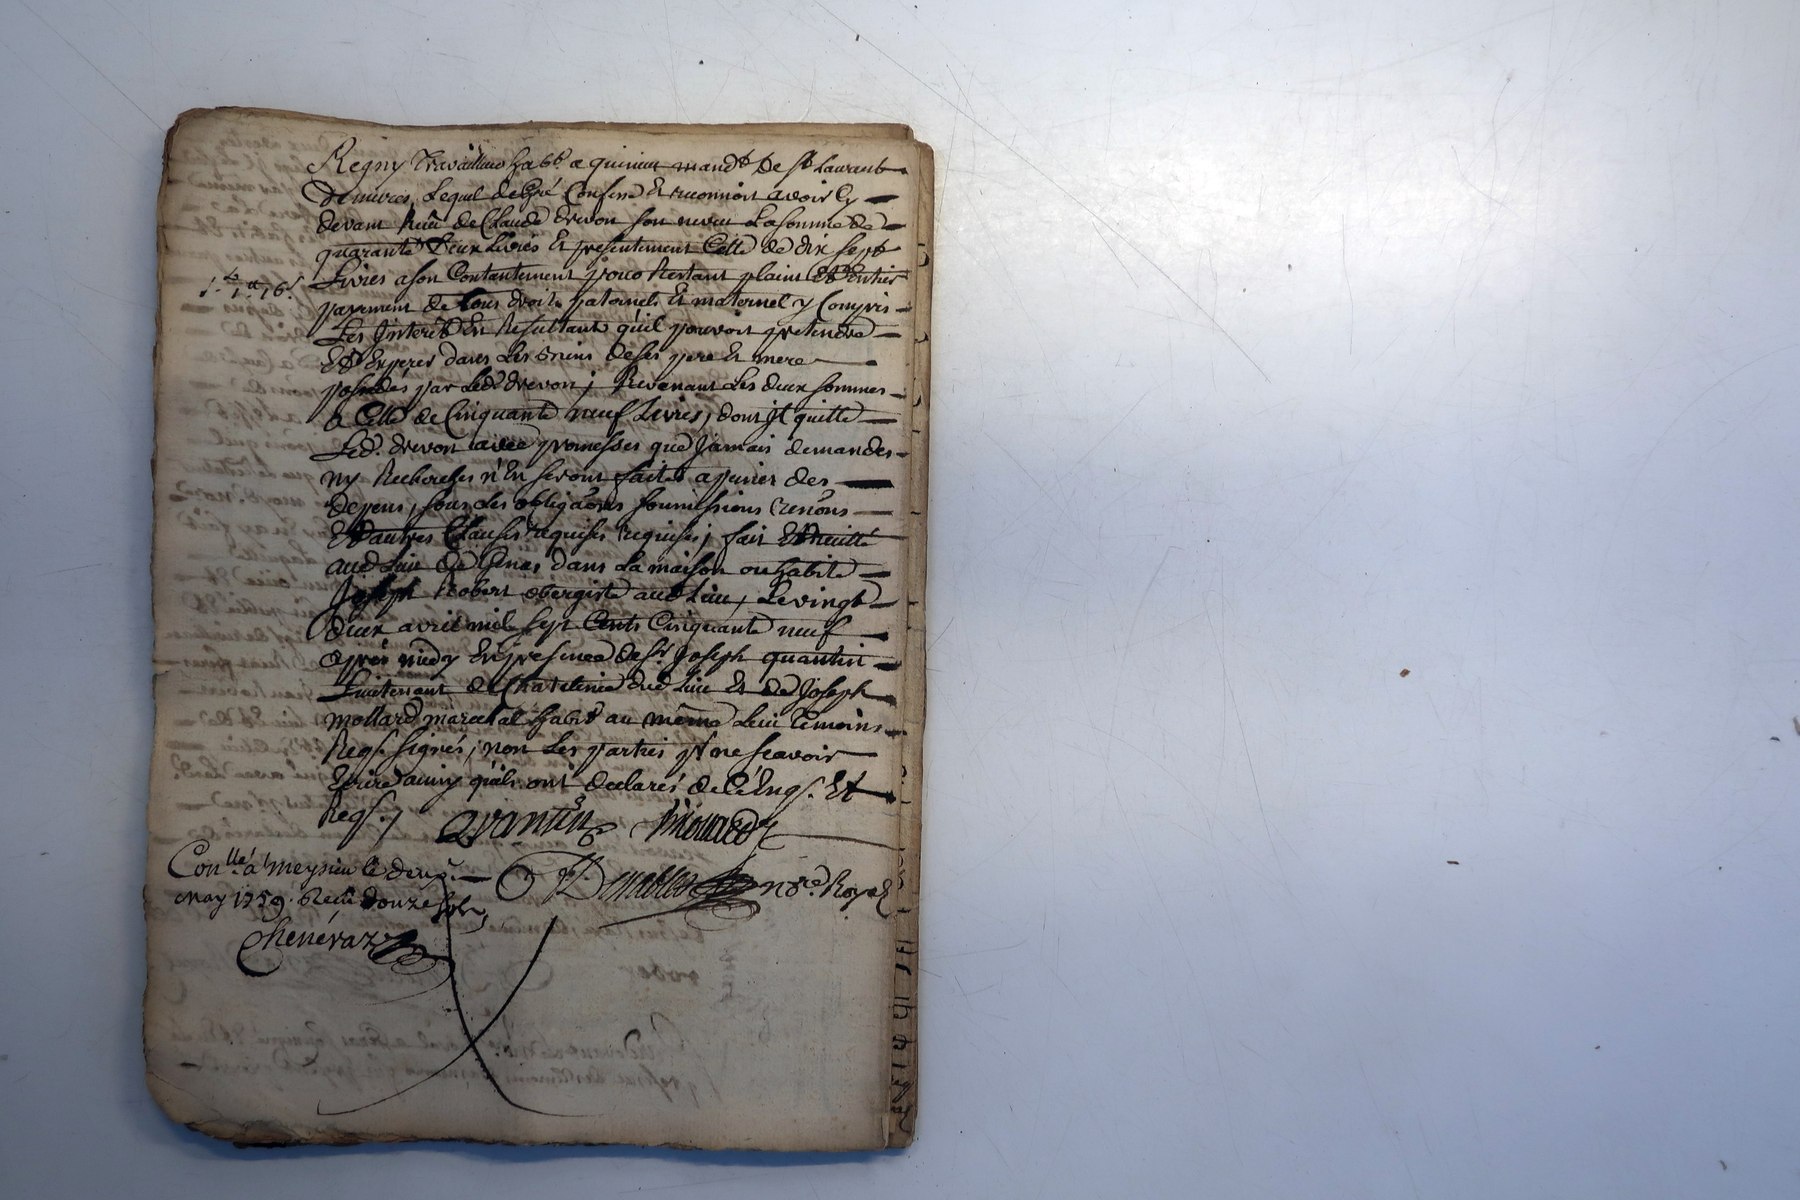 Regny Travailleur habt a quinieu mandt de st Laurent
De mures, Lequel de Gré Confesse Et reconnoit avoir Cy
devant Reçu de Claude drevon son neveu La somme de
quarante Deux Livres Et presentement Celle de dix sept
Livres a son Contantement pour Restant plaint Et Entier
payement de tous droits paternels Et maternel y Compris
Les Jnterêts En Resultants qu'il pouvoit pretendre
Et Experer dans Les Biens de ses pere Et mere
possedés par Led. drevon; Revenant Les deux sommes
a Celle de Cinquante neuf Livres, dont jl quitte
Led. drevon avec promesses que Jamais demandes
ny Recherches n'En seront faites a peines des
depens, sous Les obligaons soumissions renons
Et autres Clauses requises; fait Et
aud Lieu de Genas dans La maison ou habite
Joseph Robert obergiste aud Lieu, Le vingt
deux avril mil sept Cents Cinquante neuf
après midy En presence de sr Joseph quantin
Lieutenant de Chatelenie dud Lieu Et de Joseph
mollard marechal habt au même Lieu temoins
Reqs. signés, non Les parties pr ne scavoir
Ecrire ainsy qu'ils ont declarés de Ce Enqs. Et
Reqs.,
Quantin Mollard
Conllé a meysieu le deux
may 1759. Reçu douze sols
nore Royal
Chenévaz